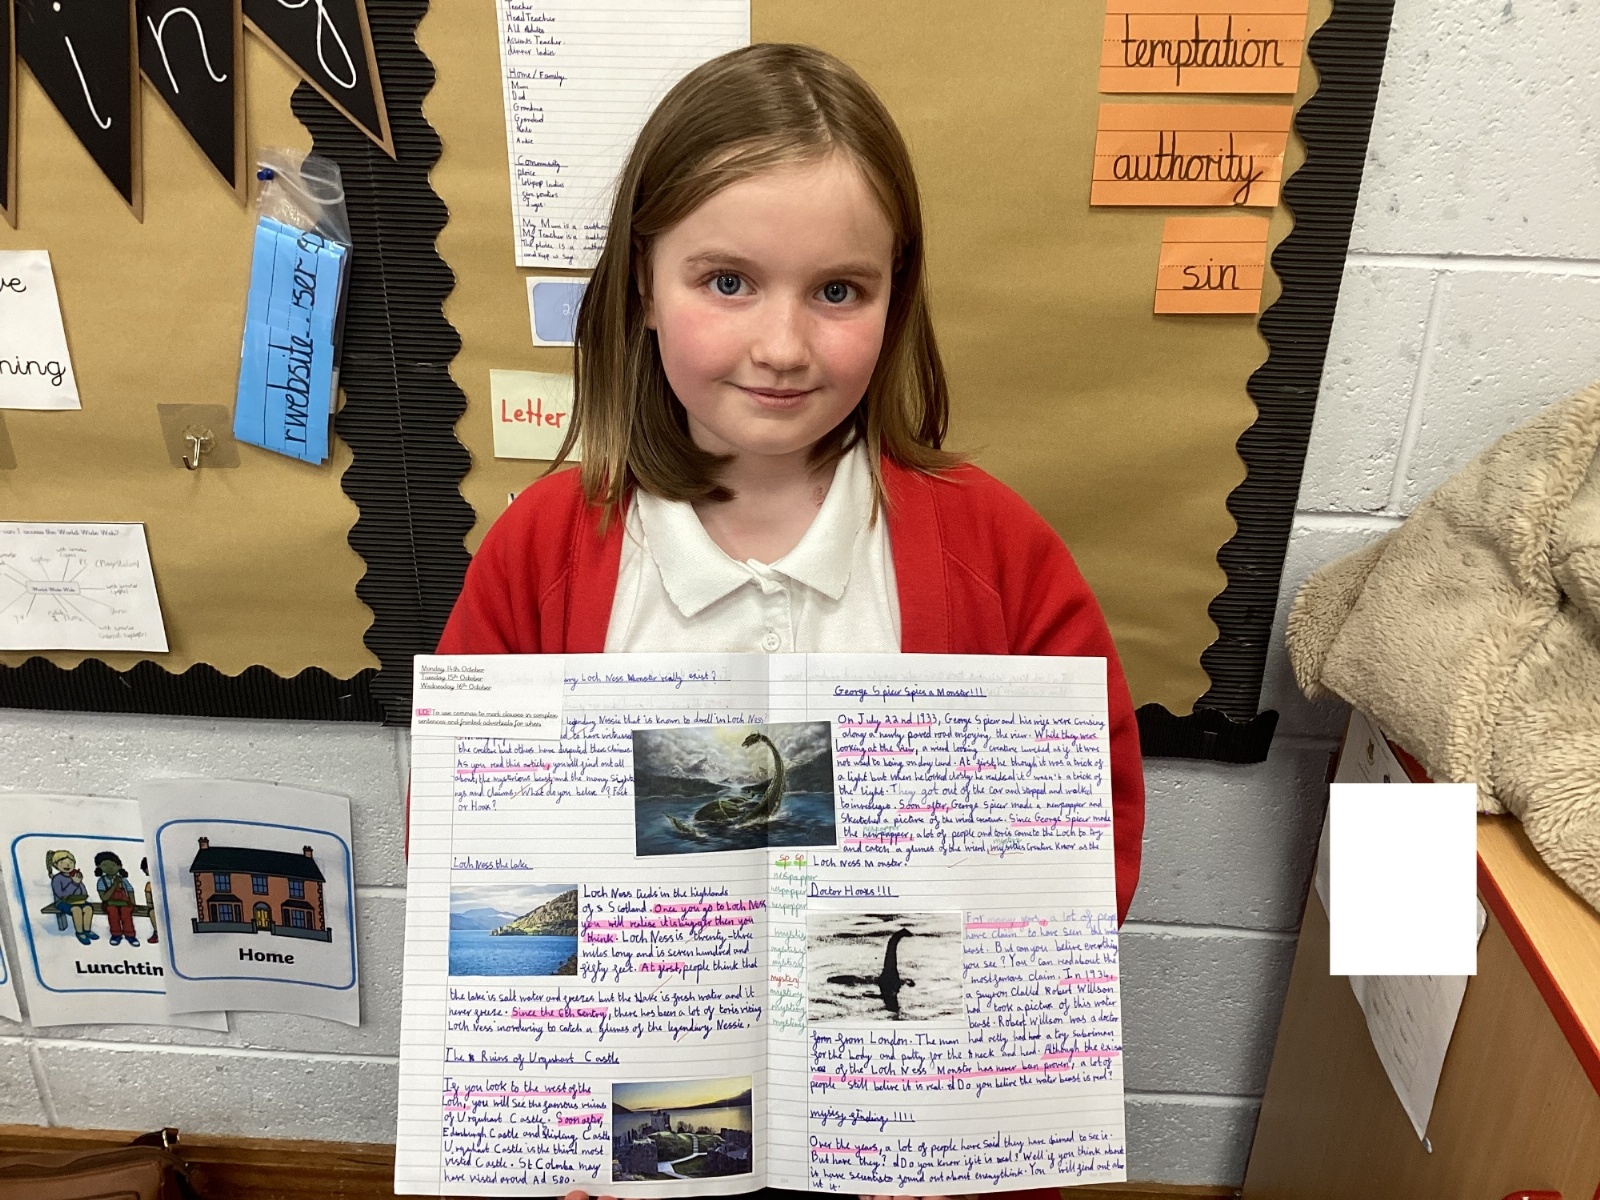 in
Teacher
Head Teacher
All Adults
dinner ladies
Home / Family
Mum
Dad
Grandma
Grandad
Community
police
lolipop ladies
My Mum is a
My Teacher is a
The police is a
temptation
authority
sin
website
ning
Letter
World Wide Web?
World Wide Web
Lunchtim
Home
Monday 14th October
Tuesday 15th October
Wednesday 16th October
LO: To use commas to mark clauses in complex
sentences and fronted adverbials for when.
Loch Ness Monster really exist?
Nessie that is known to dwell in Loch Ness
to have witnessed
the creatur but others have disputed these claims.
As you read this article, you will find out all
about, the mysterious beast and the many Sight
ngs and Claims. What do you believe? Fact
or Hoax?
Loch Ness the Lake
Loch Ness lieds in the highlands
of s Scotland. Once you go to Loch Ness
you will realise it is bigger then you
think. Loch Ness is twenty-three
miles long and is seven hundred and
fifty feet. At first, people think that
the lake is salt water and freezes but the lake is fresh water and it
never freeze. Since the 6th Sentry, there has been a lot of toris visiting
Loch Ness inordering to catch a glimes of the legendary Nessie,
The Ruins of Urquhart Castle
If you look to the west of the
Loch, you will see the famous ruins
of Urquhart Castle. Soon after,
Edinburgh Castle and Stirling Castle
Urquhart Castle is the third most
visited Castle. St Colomba may
have visted arovd Ad 580.
George Spicer Spies a Monster!!!
On July 22nd 1933, George Spicer and his wife were crusing
along a newly paved road enjoying the view. While they were
looking at the view, a weird looking creature lurched as if it was
not used to being on dry land. At first, he though it was a trick of
a light but when he looked closly he realised it wasn't a trick of
the light. They got out of the car and stopped and walked
to investiges. Soon after, George Spicer made a newspapper and
Sketched a picture of the weird creature. Since George Spicer made
the newspapper, a lot of people and toris come to the Loch to try
and catch a glimes of the wierd, mysties Creature Know as the
Loch Ness Monster.
sp sp
newspapper
newspapper
newspapper
mystery
mystery
mystery
mystery
mystery
mystery
Doctor Hoaxs!!!
For many years, a lot of peop
have claim to have seen the
beast. But can you believe everything
you see? You can read about the
most famous claim. In 1934,
a Surgeon Clalled Robert Willson
had took a picture of this water
beast. Robert Willson was a doctor
form from London. The man had relly had a toy submiran
for the body and putty for the neck and head. Although the exise
nce of the Loch Ness Monster has never been proven, a lot of
people still believe it is real. Do you believe the water beast is real?
mystry ending!!!!
Over the years, a lot of people have said they have claimed to see it.
But have they? Do you know if it is real? Well if you think about
it have scientists found out about everything. You will find out abo
ut it.